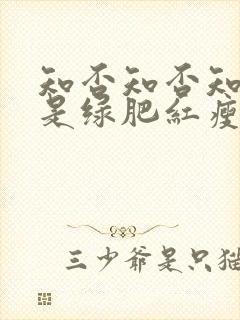 知否知否知
是绿肥红瘦
三少爷是只猫